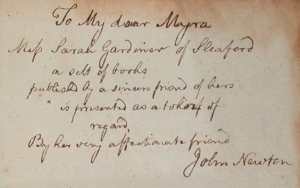 To My dear Myra
Miss Sarah Gardiner of Sleaford
a sett of books
published by a sincere friend of hers
is presented as a token of
regard,
By her very affectionate friend
John Newton